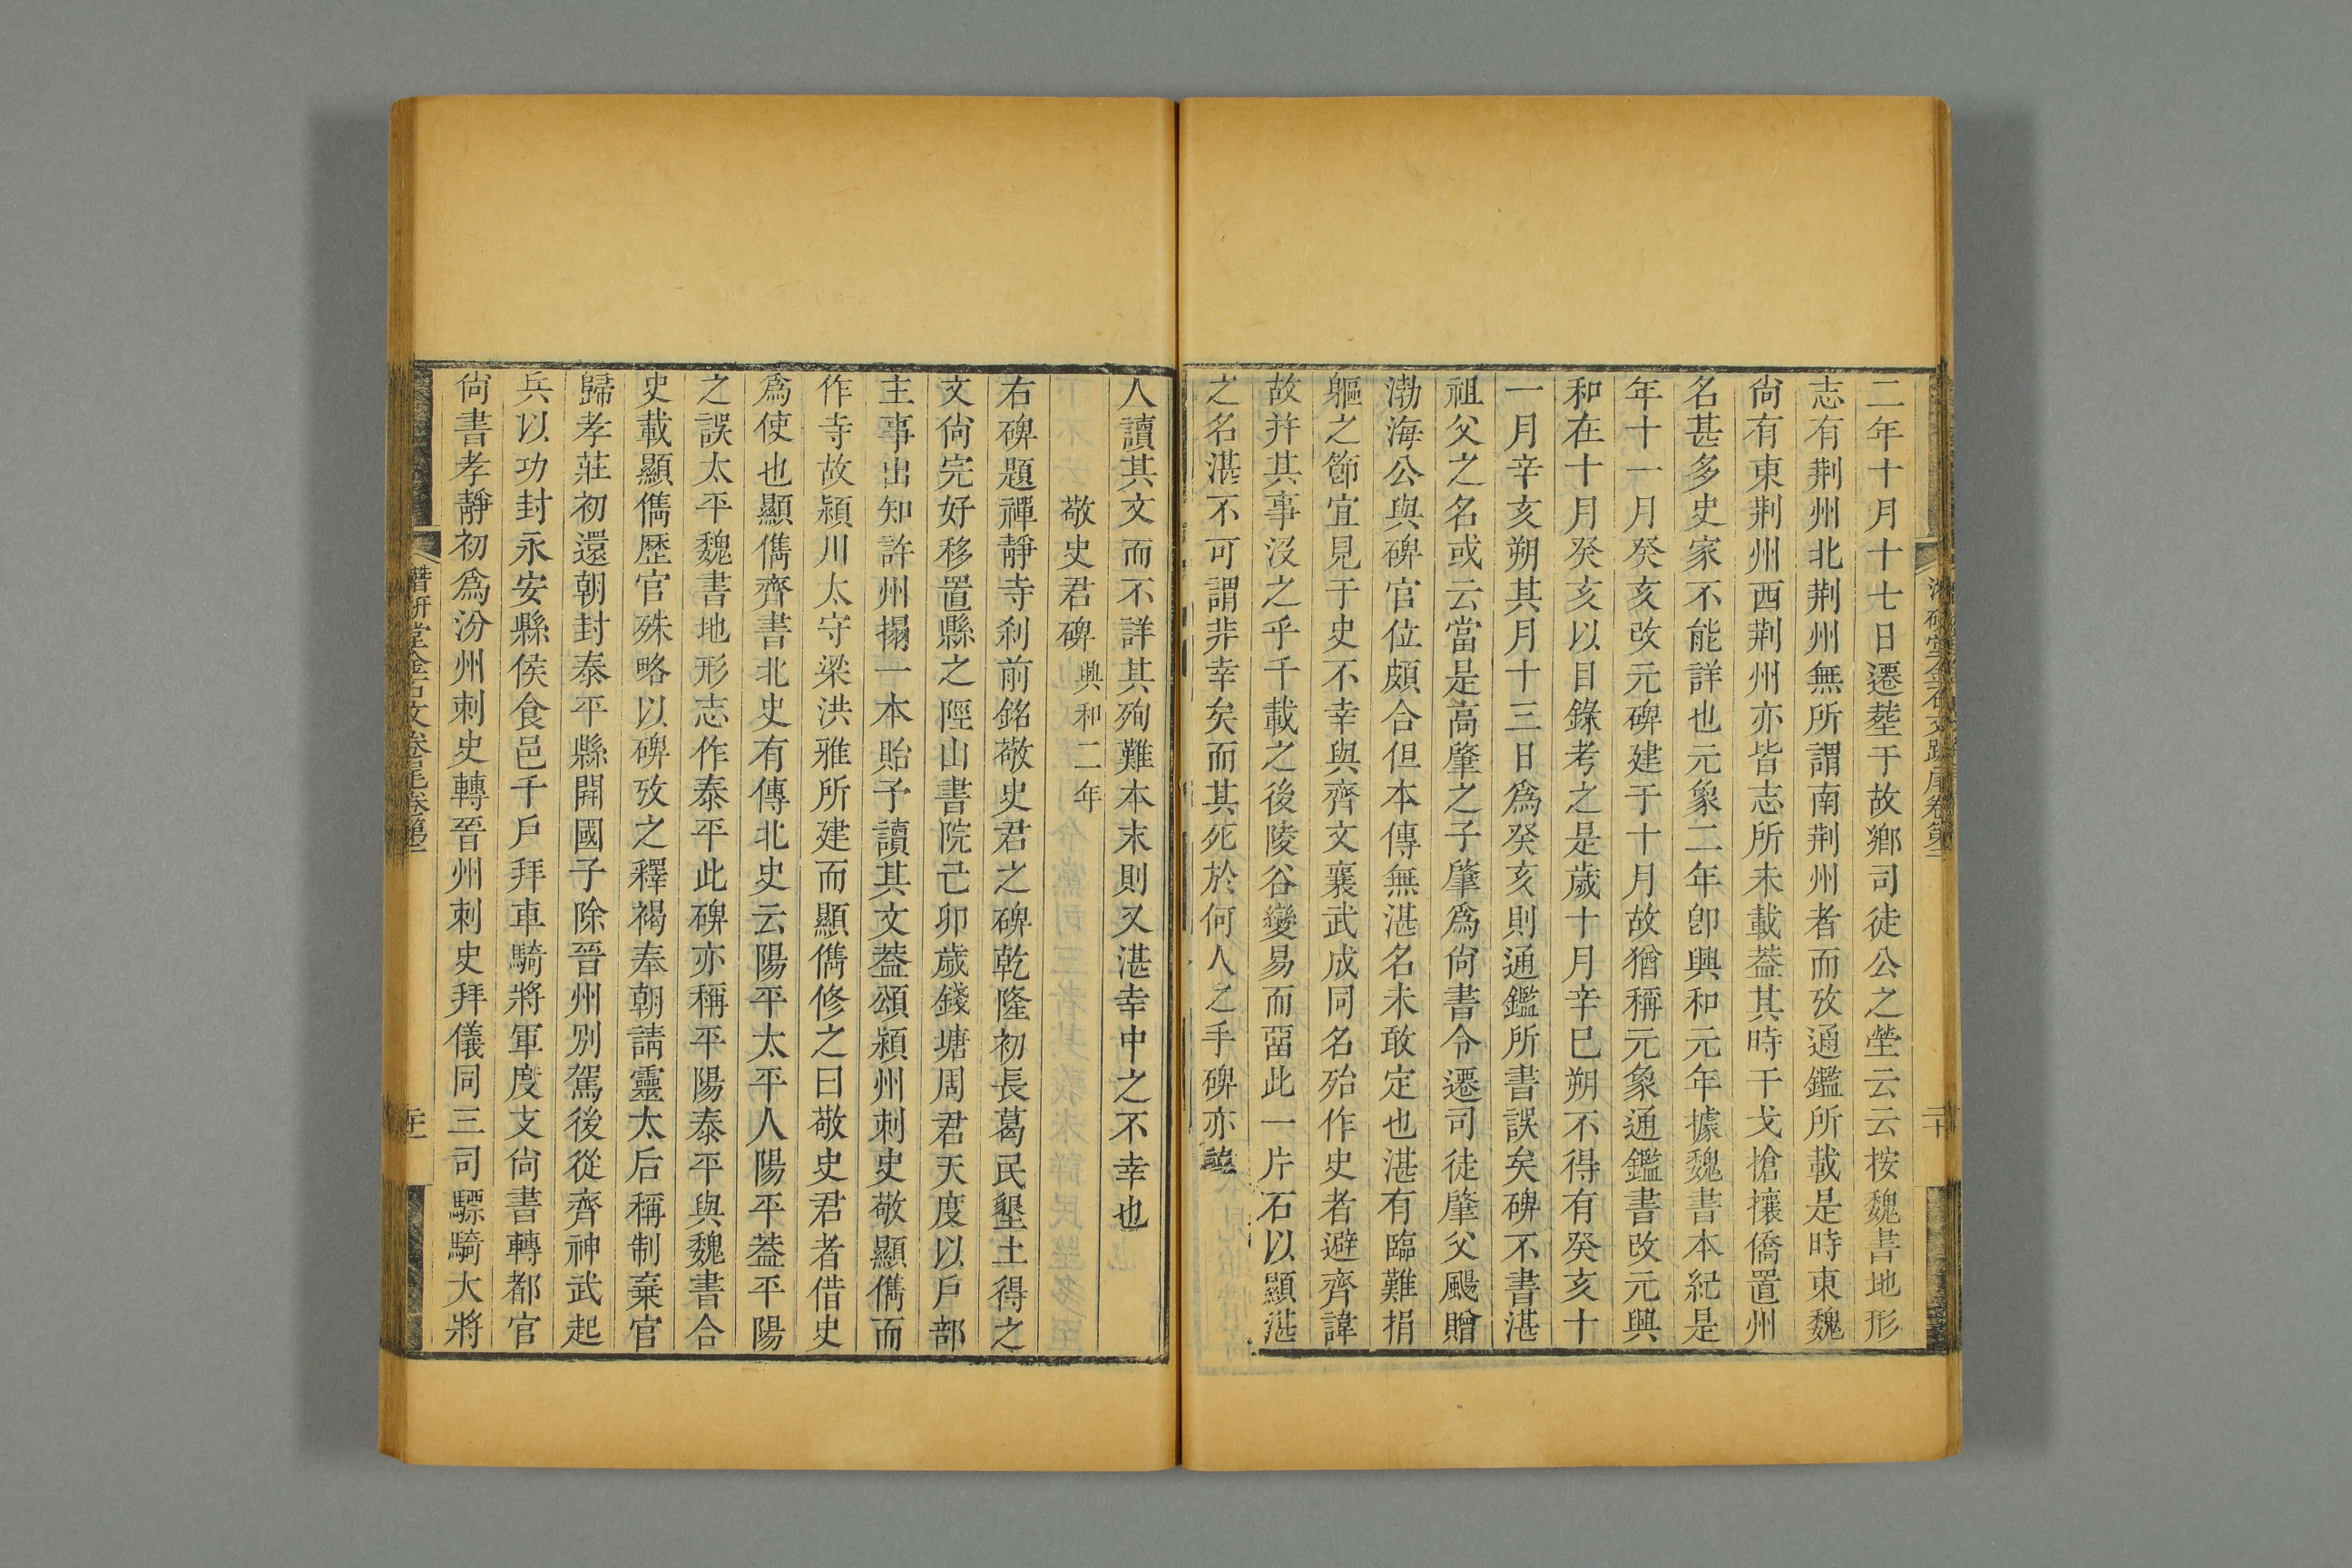 二年十月十七日遷塟于故鄉司徒公之塋云云按魏書地形
志有荆州北荆州無所謂南荆州者而攷通鑑所載是時東魏
尙有東荆州西荆州亦皆志所未載葢其時干戈搶攘僑置州
名甚多史家不能詳也元象二年卽興和元年據魏書本紀是
年十一月癸亥改元碑建于十月故猶稱元象通鑑書改元興
和在十月癸亥以目錄考之是歲十月辛巳朔不得有癸亥十
一月辛亥朔其月十三日爲癸亥則通鑑所書誤矣碑不書湛
祖父之名或云當是高肇之子肇爲尙書令遷司徒肇父颺贈
渤海公與碑官位頗合但本傳無湛名未敢定也湛有臨難捐
軀之節宜見于史不幸與齊文襄武成同名殆作史者避齊諱
故幷其事沒之乎千載之後陵谷變易而畱此一片石以顯湛
之名湛不可謂非幸矣而其死於何人之手碑亦
人讀其文而不詳其殉難本末則又湛幸中之不幸也
敬史君碑 興和二年
右碑題禪靜寺刹前銘敬史君之碑乾隆初長葛民墾土得之
文尙完好移置縣之陘山書院己卯歲錢塘周君天度以戶部
主事出知許州搨一本貽予讀其文葢頌潁州刺史敬顯儁而
作寺故潁川太守梁洪雅所建而顯儁修之曰敬史君者借史
爲使也顯儁齊書北史有傳北史云陽平太平人陽平葢平陽
之誤太平魏書地形志作泰平此碑亦稱平陽泰平與魏書合
史載顯儁歷官殊略以碑攷之釋褐奉朝請靈太后稱制棄官
歸孝莊初還朝封泰平縣開國子除晉州別駕後從齊神武起
兵以功封永安縣侯食邑千戶拜車騎將軍度支尙書轉都官
尙書孝靜初爲汾州刺史轉晉州刺史拜儀同三司驃騎大將